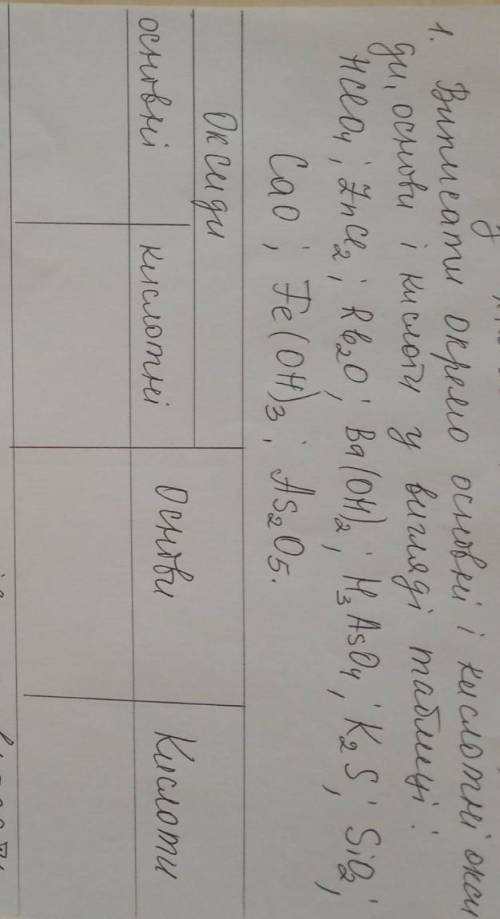 1. Виписати окремо основні і кислотні окси
ди, основи і кислоти у вигляді таблиці:
HClO₄; ZnCl₂; Rb₂O; Ba(OH)₂; H₃AsO₄; K₂S; SiO₂;
CaO; Fe(OH)₃; As₂O₅.
Оксиди
основні кислотні Основи Кислоти